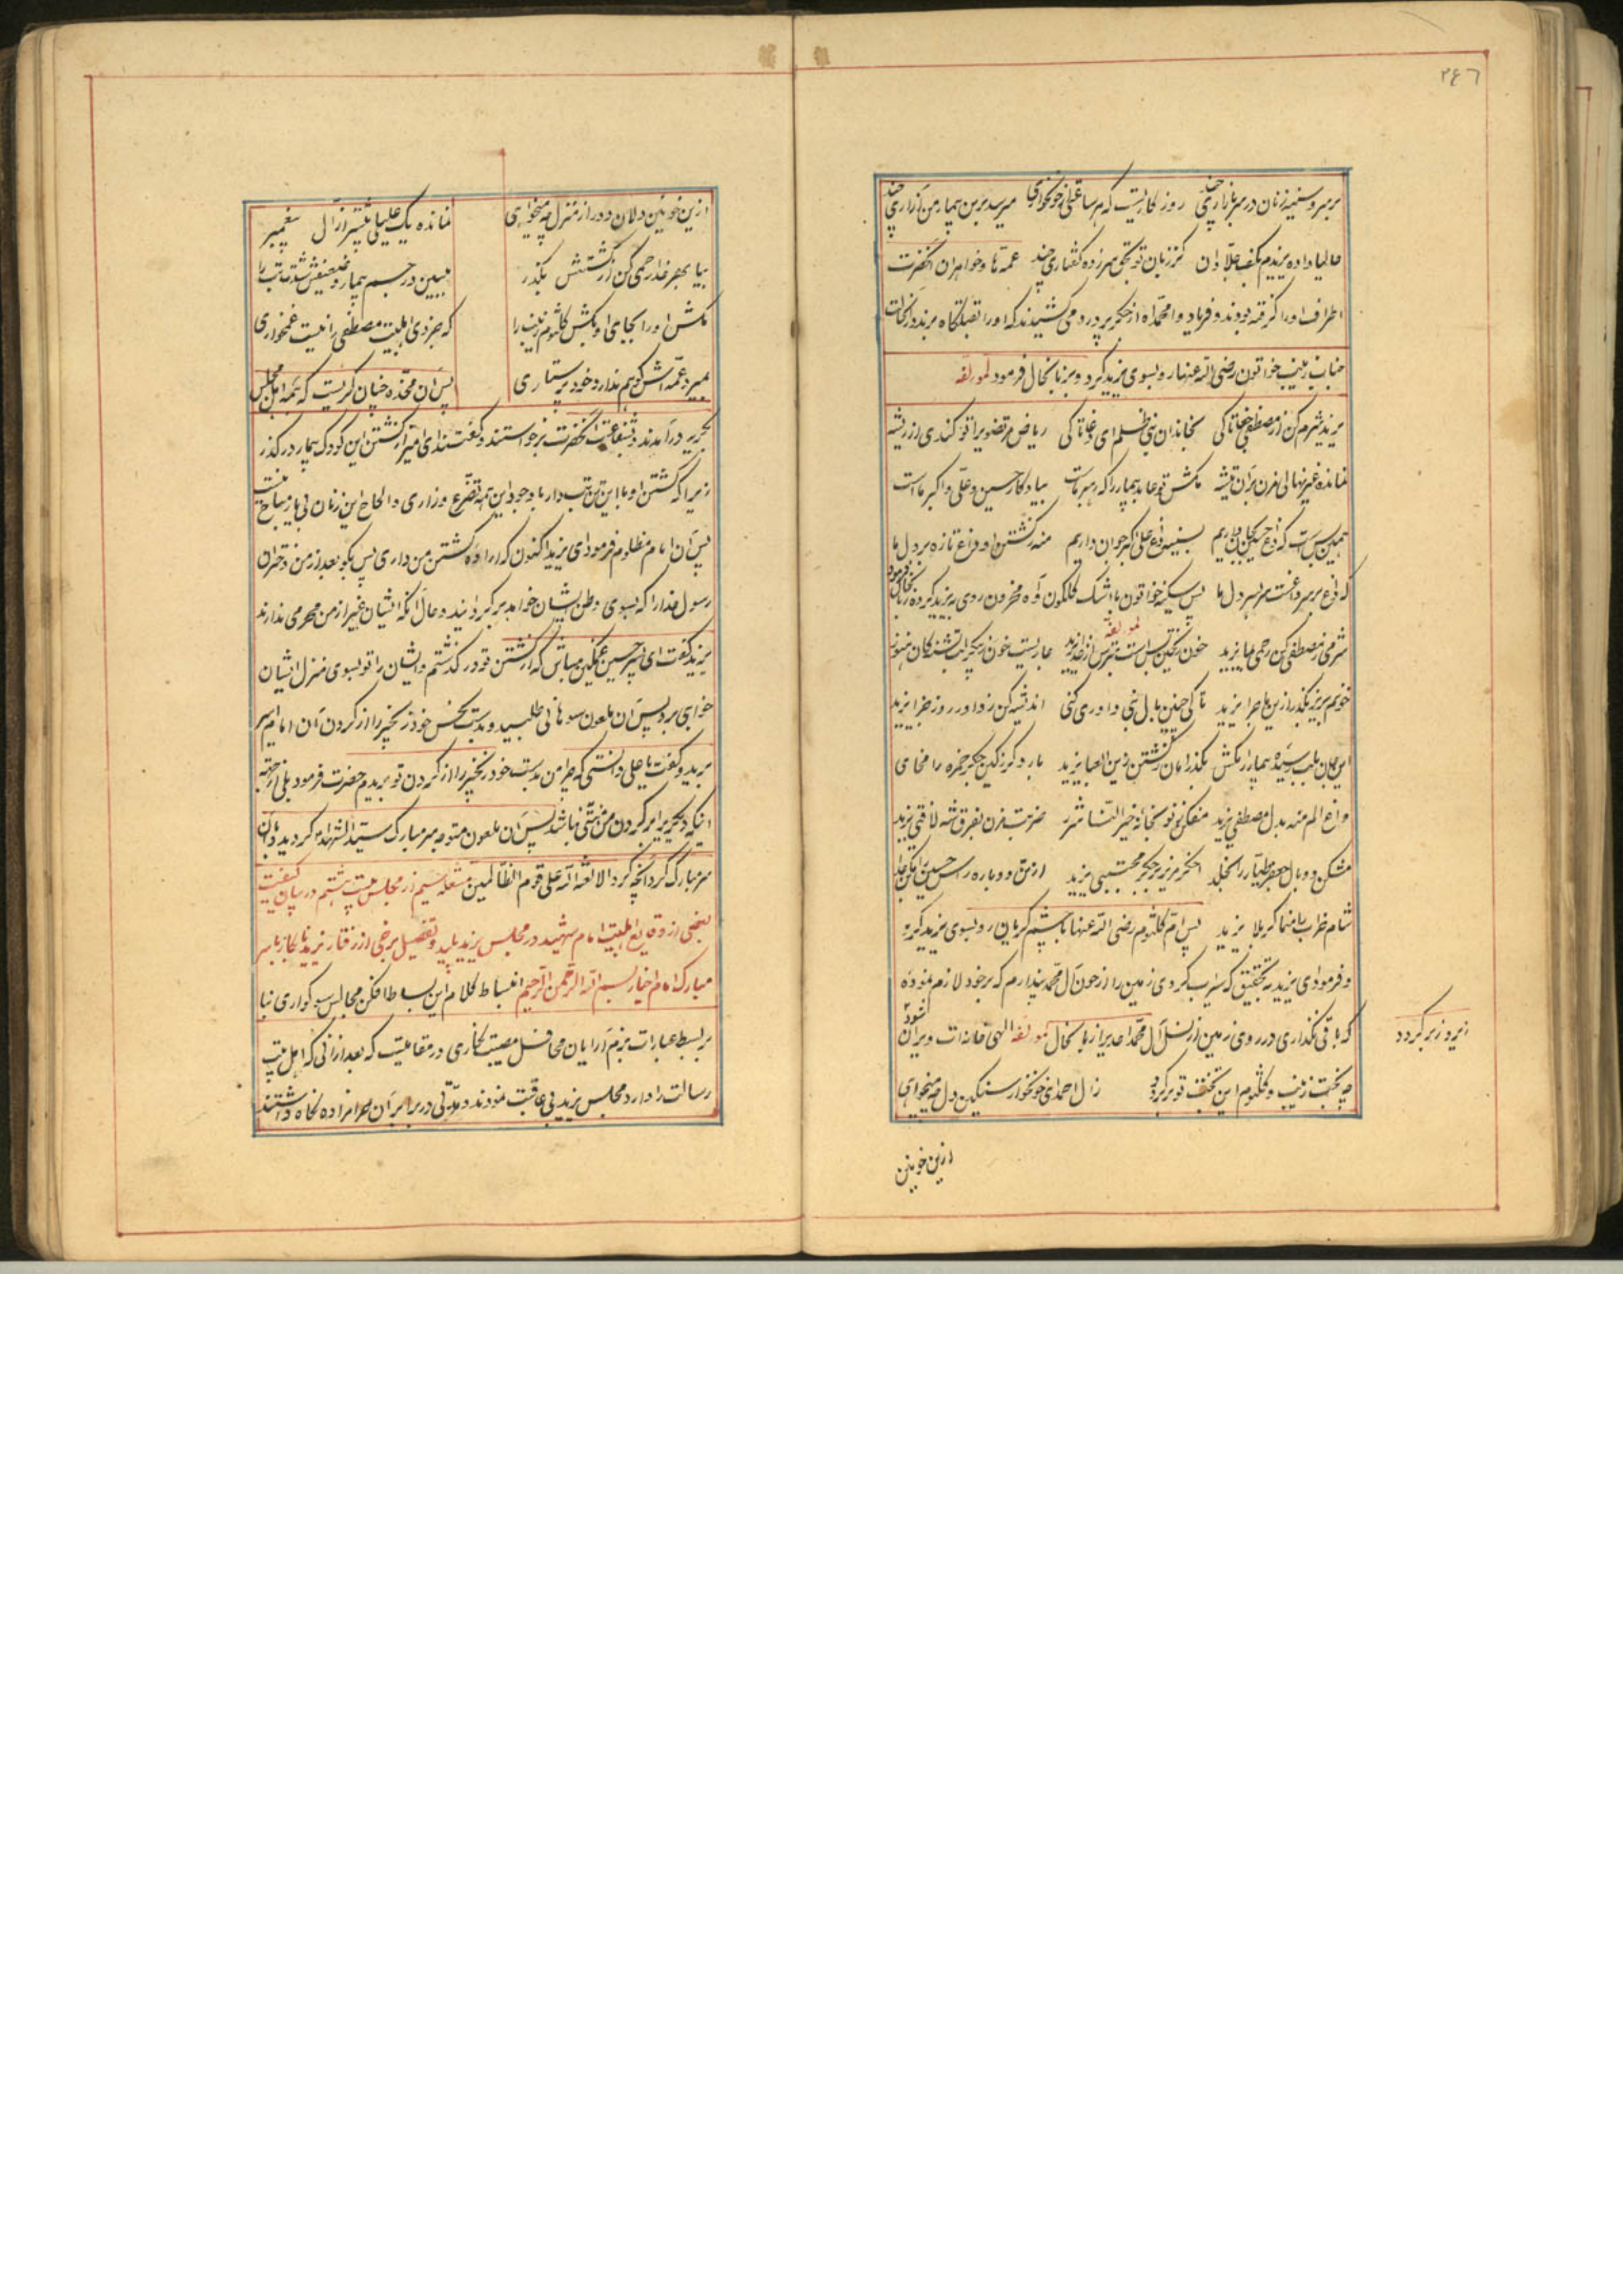 ٢٤٦
بر سر و سینه زنان در سر بازاری چند روز کاریست که هر ساعتی از خونخواری چند میرسد بر من بیمار من آزاری چند
حالیا داده یزیدم بکف جلادان کز زبان تو بکی هرزه گفتاری چند عمّه ها و خواهران آنحضرت
اطراف او را گرفته بودند و فریاد وامحمداه از جگر پر درد می کشیدند که او را بقتلگاه برند در آنحالت
جناب زینب خواتون رضی الله عنها رو بسوی یزید کرد و بزبانحال فرمود لمولفه
یزید شرم کن از مصطفی جفا تا کی بخاندان نبی ظلم ای دغا تا کی ریاض مرتضوی را تو کندی از ریشه
نمانده غیر نهالی مزن بر آن تیشه مکش تو عابد بیمار را که رهبر ماست بیادگار حسین و علی و اکبر ماست
همین بس است که داغ حسین بجان داریم بسینه داغ علی اکبر جوان داریم منه ز کشتن او داغ تازه بر دل ما
که داغ بر سر داغست بر سر دل ما پس سکینه خواتون با اشک گلگون و آه محزون روی به یزید کرده بزبانحال فرمود
لمولفه
شرمی ز مصطفی کن رحمی بما یزید خون حسین بس است بترس از خدا یزید
خونم بریز بگذر ازین ماجرا یزید تا کی چنین بآل نبی داوری کنی اندیشه کن ز داور روز جزا یزید
این جان بلب رسیده بیمار را مکش بگذر امان ز کشتن زین العبا یزید بار دگر مکن جگر حمزه را مخای
داغ الم منه بدل مصطفی یزید مفکن تو نو بخانه خیر النّسا شرر ضربت مزن بفرق شه لافتی یزید
مشکن دو بال جعفر طیار را بخلد اخگر مریز بر جگر مجتبی یزید از تن دوباره راس حسین را مکن جدا
شام خراب را منما کربلا یزید پس امّ کلثوم رضی الله عنها با چشم گریان رو بسوی یزید کرد
و فرمود ای یزید بتحقیق که سیراب کردی زمین را از خون آل محمّد پندارم که بر خود لازم نموده
که باقی نگذاری در روی زمین از نسل آل محمّد احدیرا زبانحال لمولفه الهی خانه ات ویران شود
زیر و زبر گردد
چه بختت زینب و کلثوم این تخفت تو بر گردد ز آل احمد ای خونخوار سنگین دل چه میخواهی
ازین خونین
ازین خونین دلان دور از منزل چه میخواهی نمانده یک علیلی بیشتر از آل پیغمبر
بیا بهر خدا رحمی کن از کشتنش بگذر ببین در جسم بیمار و ضعیفش شدّت تب را
مکش او را بجای او بکش کلثوم و زینب را که جز وی اهلبیت مصطفی را نیست غمخواری
بمیرد عمّه اش کو هم ندارد خود پرستاری پس آن مخدّره چنان گریست که همه اهل مجلس
بگریه در آمدند و شفاعت آنحضرت برخواستند و گفتند ای امیر از کشتن این کودک بیمار در گذر
زیرا که کشتن او با این تن تبدار با وجود این همه تضرّع و زاری و الحاح این زنان بی یار مباح نیست
پس آن امام مظلوم فرمود ای یزید اکنون که اراده کشتن من داری پس بگو بعد از من دختران
رسول خدا را که بسوی وطن ایشان خواهد برگردانید و حال آنکه ایشان بغیر از من محرمی ندارند
یزید گفت ای پسر حسین غمگین مباش که از کشتن تو در گذشتم و ایشان را تو بسوی منزل ایشان
خواهی برد پس آن ملعون سوهانی طلبید و بدست نحس خود زنجیر را از گردن آن امام اسیر
برید و گفت یا علی دانستی که چرا من بدست خود زنجیر را از گردن تو بریدم حضرت فرمود بلی از جهة
اینکه دیگری را بر گردن من منّتی نباشد پس آن ملعون متوجه سر مبارک سیّد الشهدا گردید و با آن
سر مبارک کرد آنچه کرد الا لعنة الله علی قوم الظّالمین مشعله سیم از مجلس بیست و هشتم در بیان کیفیت
بعضی از وقایع اهلبیت امام شهید در مجلس یزید پلید و تفصیل برخی از رفتار یزید نابکار با سر
مبارک امام اخیار بسم الله الرّحمن الرّحیم انبساط کلام این بساط افکن مجالس سوگواری بنا
بر بسط عبارات بزم آرایان محافل مصیبت گذاری در مقامیست که بعد از آنی که اهل بیت
رسالت را وارد مجلس یزید بی عاقبت نمودند و مدّتی در برابر آن حرامزاده نگاه داشتند